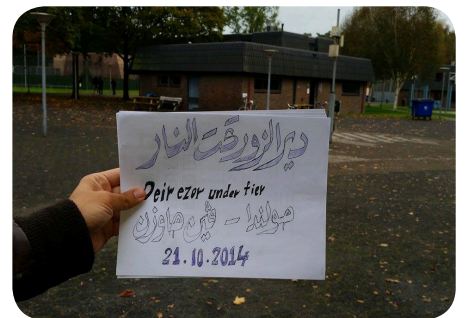 ديرالزور تحت النار
Deir ezor under fier
هولندا - فين هاوزن
21.10.2014